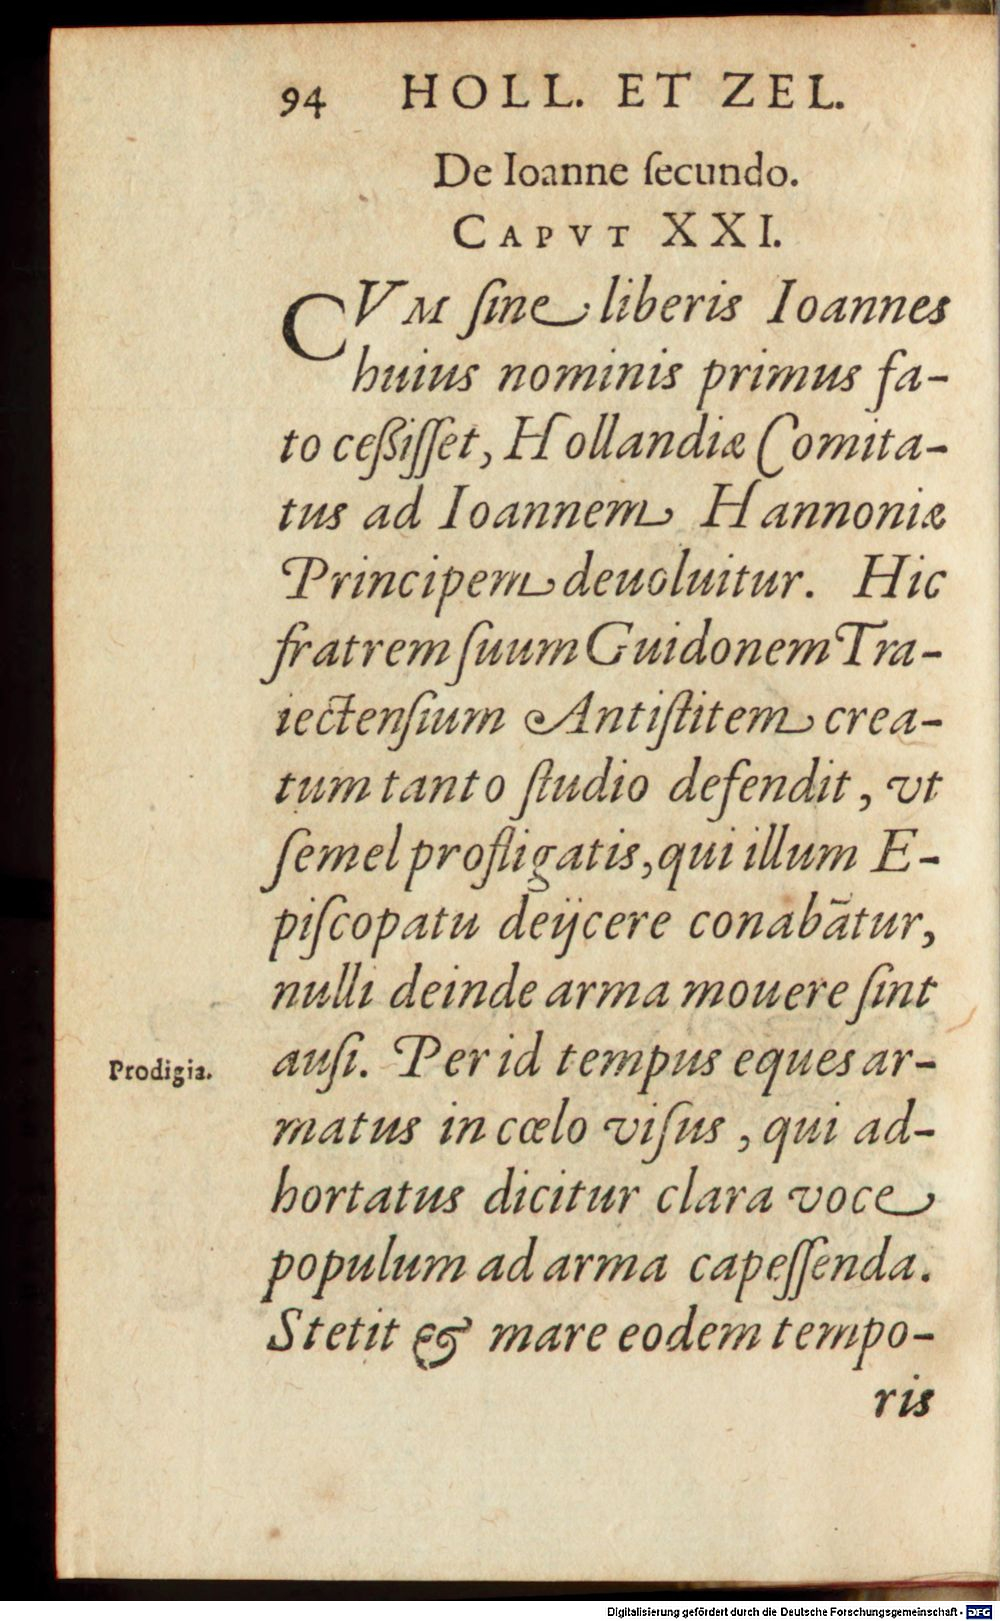 94 HOLL. ET ZEL.
De Ioanne ſecundo.
CAPVT XXI.
CVM ſine liberis Ioannes
huius nominis primus fa-
to ceßiſſet, Hollandiæ Comita-
tus ad Ioannem Hannoniæ
Principem deuoluitur. Hic
fratrem ſuum Guidonem Tra-
iectenſium Antiſtitem crea-
tum tanto ſtudio defendit, vt
ſemel profligatis, qui illum E-
piſcopatu deijcere conabātur,
nulli deinde arma mouere ſint
Prodigia. auſi. Per id tempus eques ar-
matus in cœlo viſus, qui ad-
hortatus dicitur clara voce
populum ad arma capeſſenda.
Stetit & mare eodem tempo-
ris
Digitalisierung gefördert durch die Deutsche Forschungsgemeinschaft - DFG